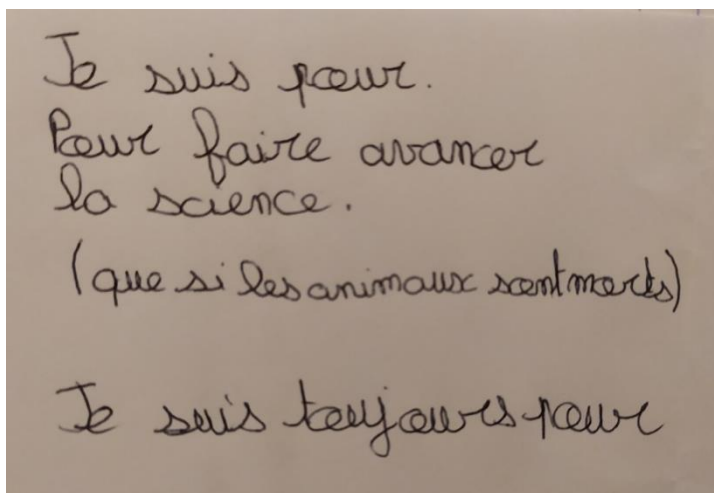 Je suis pour.
Pour faire avancer
la science.
(que si les animaux sont morts)
Je suis toujours pour